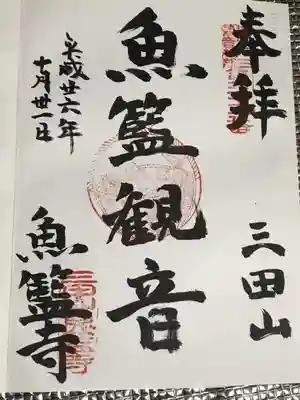 奉拝
三田山
魚籃観音
平成廿六年
十月廿一日
魚籃寺